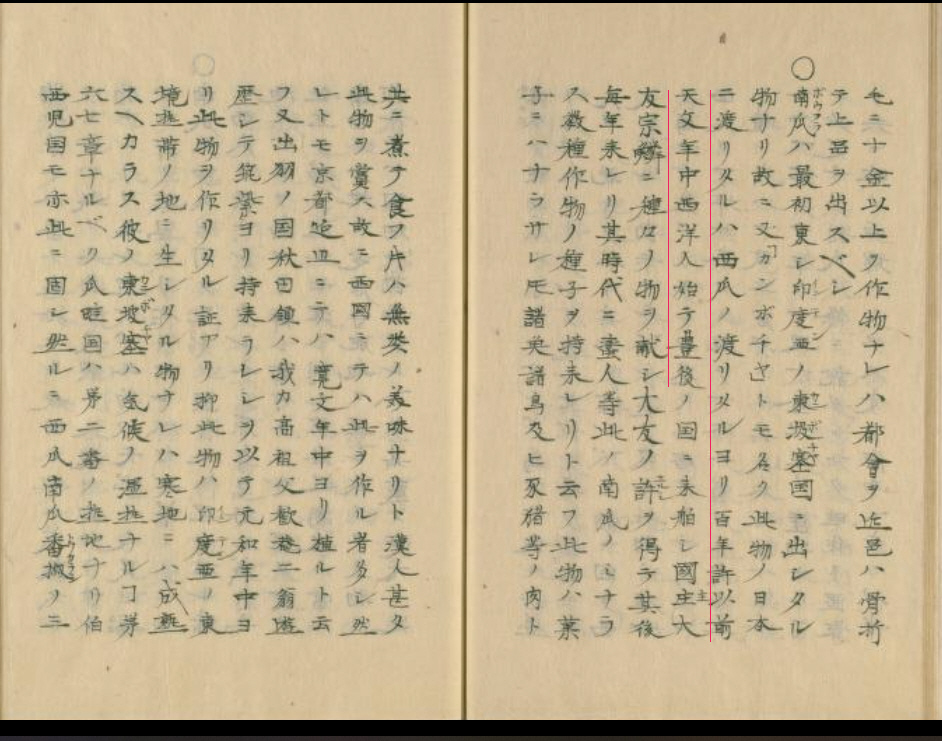 モ二十金以上ク作物ナレハ都會ヲ近邑ハ骨折
テ上品ヲ出スベシ
○南瓜ハ最初東シ印度亜ノ東坡塞国ニ出シタル
物ナリ故ニ又「カンボチヤ」トモ名ク此物ノ日本
ニ渡リタルハ西瓜ノ渡リタルヨリ百年許以前
天文年中西洋人始テ豊後ノ国ニ来舶シ國主大
友宗麟ニ種々ノ物ヲ献シ大友ノ許ヲ得テ其後
毎年来レリ其時代ニ蛮人等此ノ南瓜ノミナラ
ス数種作物ノ種子ヲ持来レリト云フ此物ハ菓
子ニハナラサレ𪜈諸魚諸鳥及ヒ豕猪等ノ肉ト
共ニ煮テ食フ片ハ無类ノ美味ナリト漢人甚タ
此物ヲ賞ス故ニ西國ニテハ此ヲ作ル者多シ然
レトモ京都近辺ニテハ寛文年中ヨリ植ルト云
フ又出羽ノ国秋田領ハ我カ高祖父歓庵二翁遊
歴シテ筑紫ヨリ持来ラレシヲ以テ元和年中ヨ
リ此物ヲ作リタル証アリ抑此物ハ印度亜ノ東
境熱帯ノ地ニ生シタル物ナレハ寒地ニハ成熟
スヘカラス彼ノ東坡塞ハ気候ノ温熱ナルヿ第
六七章ナルベク瓜哇国ハ第二番ノ熱地ナリ伯
西児国モ亦此ニ同シ然ルニ西瓜南瓜番椒ノ三